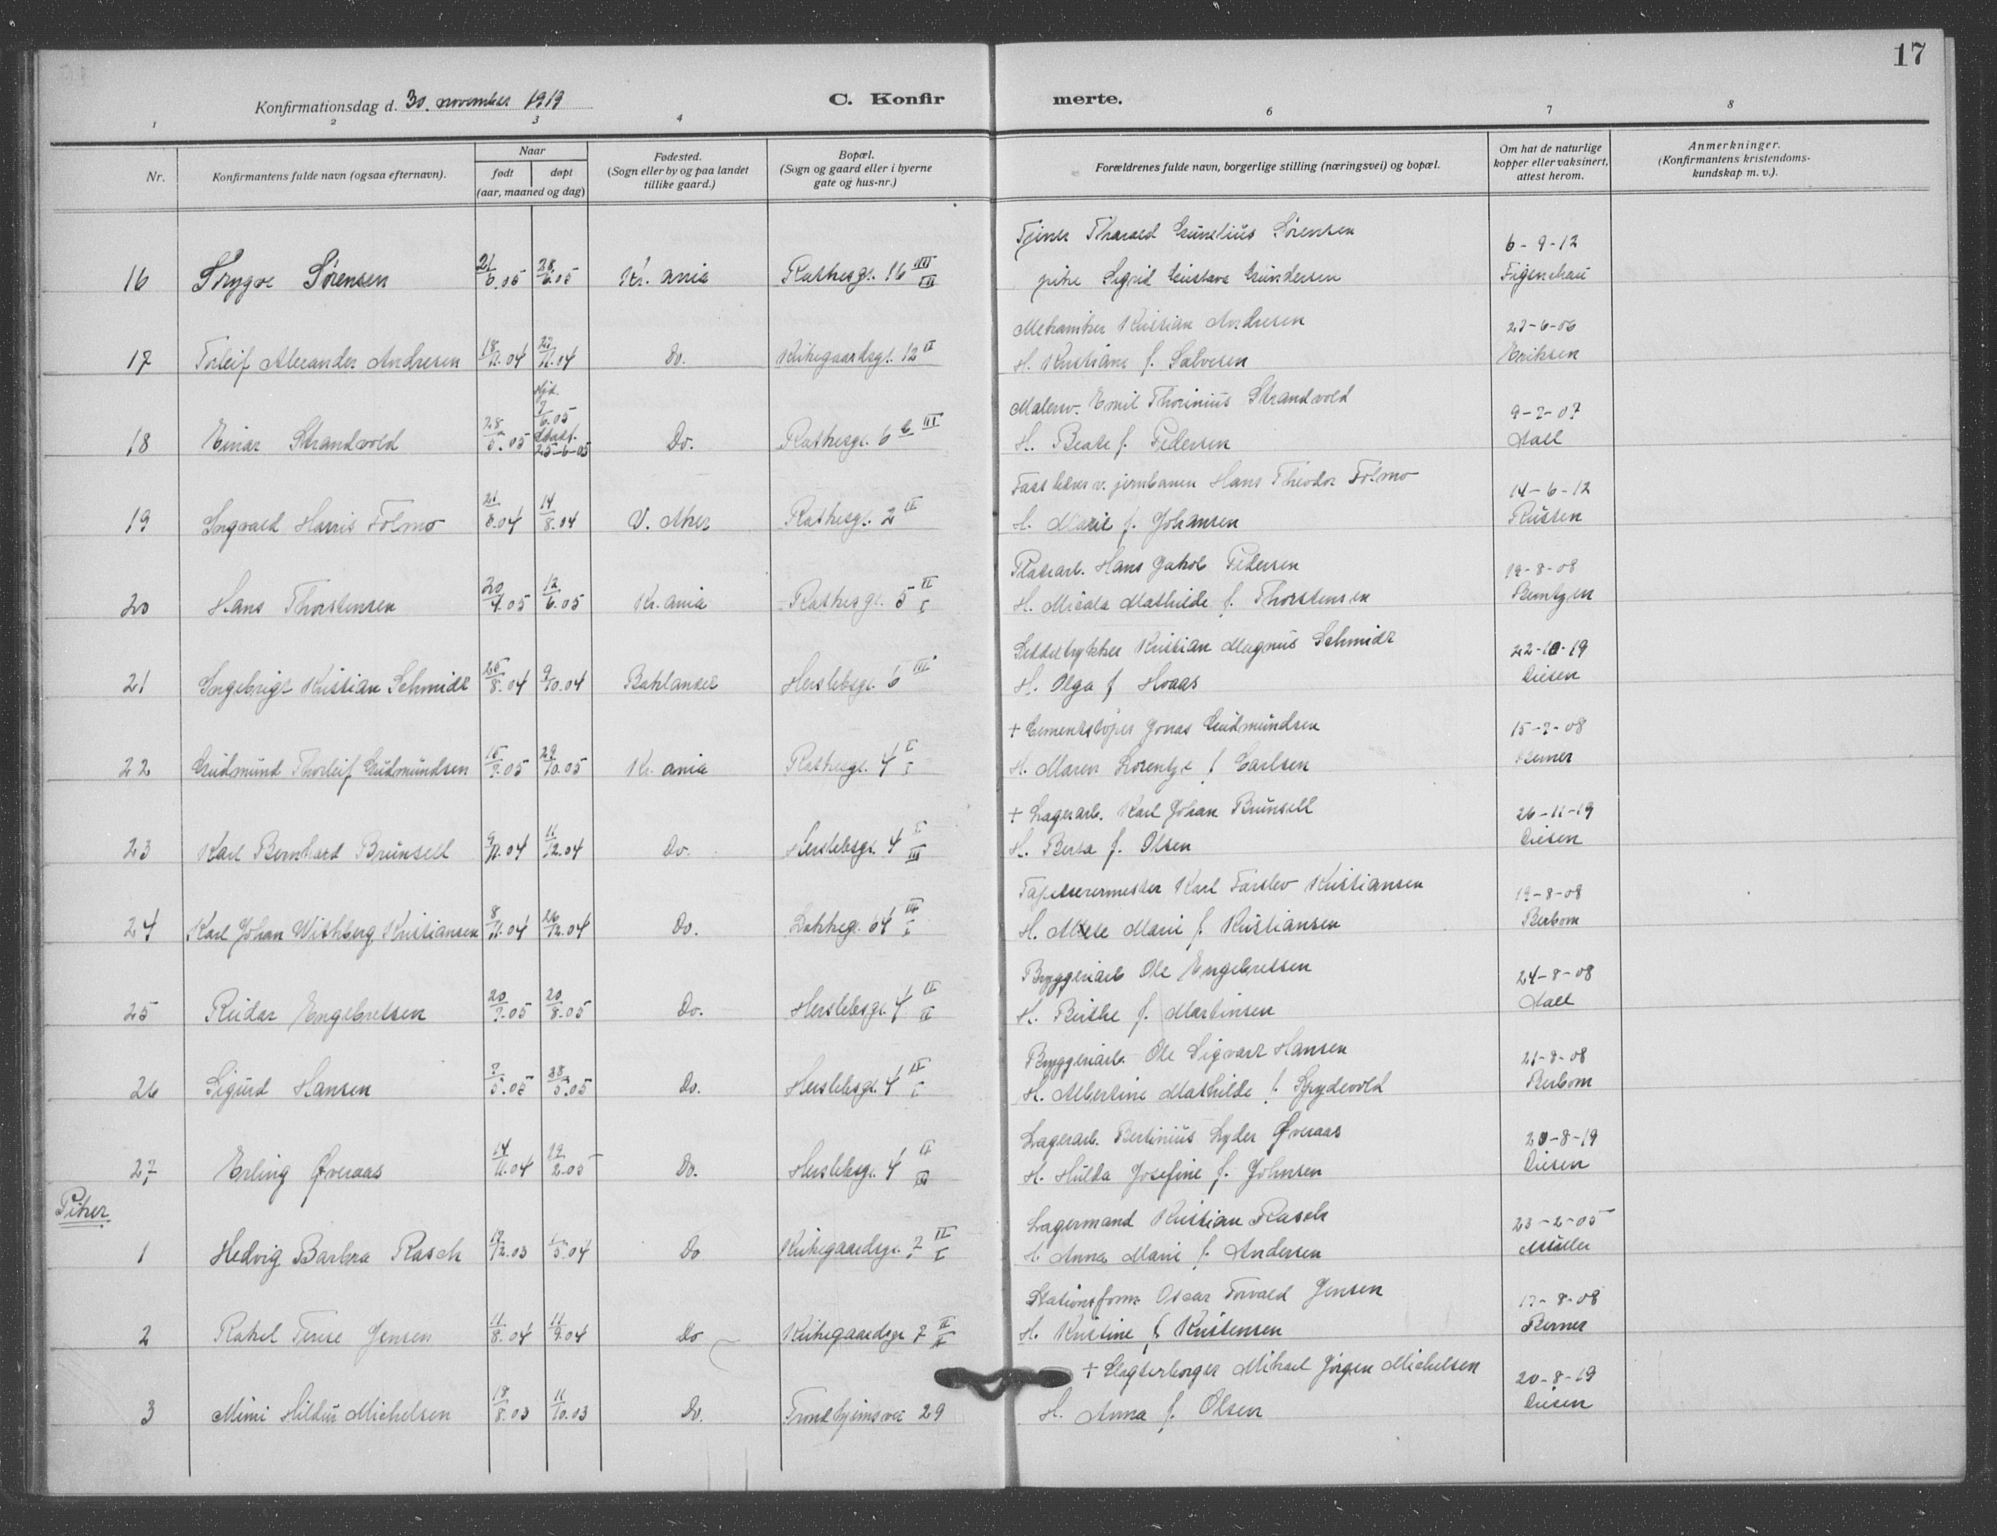 17
Konfirmationsdag d. 30. november 1919
C. Konfir merte.
1 2 3 4 6 7 8
Nr.
Konfirmantens fulde navn (ogsaa efternavn).
Naar
født døpt
(aar, maaned og dag)
Fødested.
(Sogn eller by og paa landet
tillike gaard.)
Bopæl.
(Sogn og gaard eller i byerne
gate og hus-nr.)
Forældrenes fulde navn, borgerlige stilling (næringsvei) og bopæl.
Om hat de naturlige
kopper eller vaksinert,
attest herom.
Anmerkninger.
(Konfirmantens kristendoms-
kundskap m. v.).
Tjener Tharald Sørensen 6-9-12
16 Trygve Sørensen 21/6.05 28/6.05 Kr.ania Rathesgt. 16 III pike Sigrid Gustava Gundersen
Mekaniker Kristian Andresen
17 Torleif Alexander Andresen 18/11.04 Do. Kirkegaardsgt. 12 II H. Kristiane f. Salvesen Eriksen
Malersv. Emil Thorinius Strandvold 9-2-07
18 Einar Strandvold 28/5.05 hjd. 9/6.05 stadf. 25-6-05 Do. Rathesgt. 6 b III H. Beate f. Pedersen Aall
v. jernbanen Hans Theodor Tolmo 14-6-12
19 Ingvald Harris Tolmo 14/8.04 V. Aker Rathesgt. 2 III H. Marie f. Johansen Rusten
Hans Jakob Pedersen 19-8-08
20 Hans Thorstensen 20/4.05 12/6.05 Kr.ania Rathesgt. 5 II/I H. Micala Mathilde f. Thorstensen Berntzen
Kristian Magnus Schmidt 22-10-19
21 Ingebrigt Kristian Schmidt 25/8.04 9/10.04 Baklandet Herslebsgt. 6 III H. Olga f. Hoaas Diesen
+ Cementstøper Jonas Gudmundsen 15-2-08
22 Gudmund Thorleif Gudmundsen 29/10.05 Kr.ania Rathesgt. 4 I/I H. Maren Lorentze f. Carlsen Berner
+ Lagerarb. Karl Johan Brunsell 26-11-19
23 Karl Bernhard Brunsell 9/11.04 11/12.04 Do. Herslebsgt. 4 I/III H. Berta f. Olsen Diesen
Tapetserermester Karl Torslev Kristiansen 19-8-08
24 Karl Johan Withberg Kristiansen 8/11.04 26/12.04 Do. Lakkeg. 64 III/I H. Marie f. Kristiansen Berbom
Bryggeriarb. Ole Engebretsen 24-8-08
25 Reidar Engebretsen 20/8.05 Do. Herslebsgt. 4 II/II H. Birthe f. Martinsen Aall
Bryggeriarb. Ole Sigvart Hansen 21-8-08
26 Sigurd Hansen 28/5.05 Do. Herslebsgt. 4 II/I H. Albertine Mathilde f. Spydevold Berbom
Lagerarb. Bertinius Lyder Øveraas 20-8-19
27 Erling Øveraas 14/11.04 Do. Herslebsgt. 4 II/III H. Hulda Josefine f. Johnsen Diesen
Piker
Lagermand Kristian Rasch 23-2-05
1 Hedvig Barbra Rasch Do Kirkegaardsgt. 7 II/I H. Anna Marie f. Andersen Müller
Stationsform. Oscar Torvald Jensen 17-8-08
2 Rakel Terese Jensen 11/8.04 11/9.04 Do Kirkegaardsgt 7 II/II H. Kristine f. Kristensen Berner
+ Slagterborger Mikael Jørgen Michelsen 20-8-19
3 Mimi Hildur Michelsen 18/8.03 11/10.03 Do. Trondhjemsvei 29 H. Anna f. Olsen Diesen